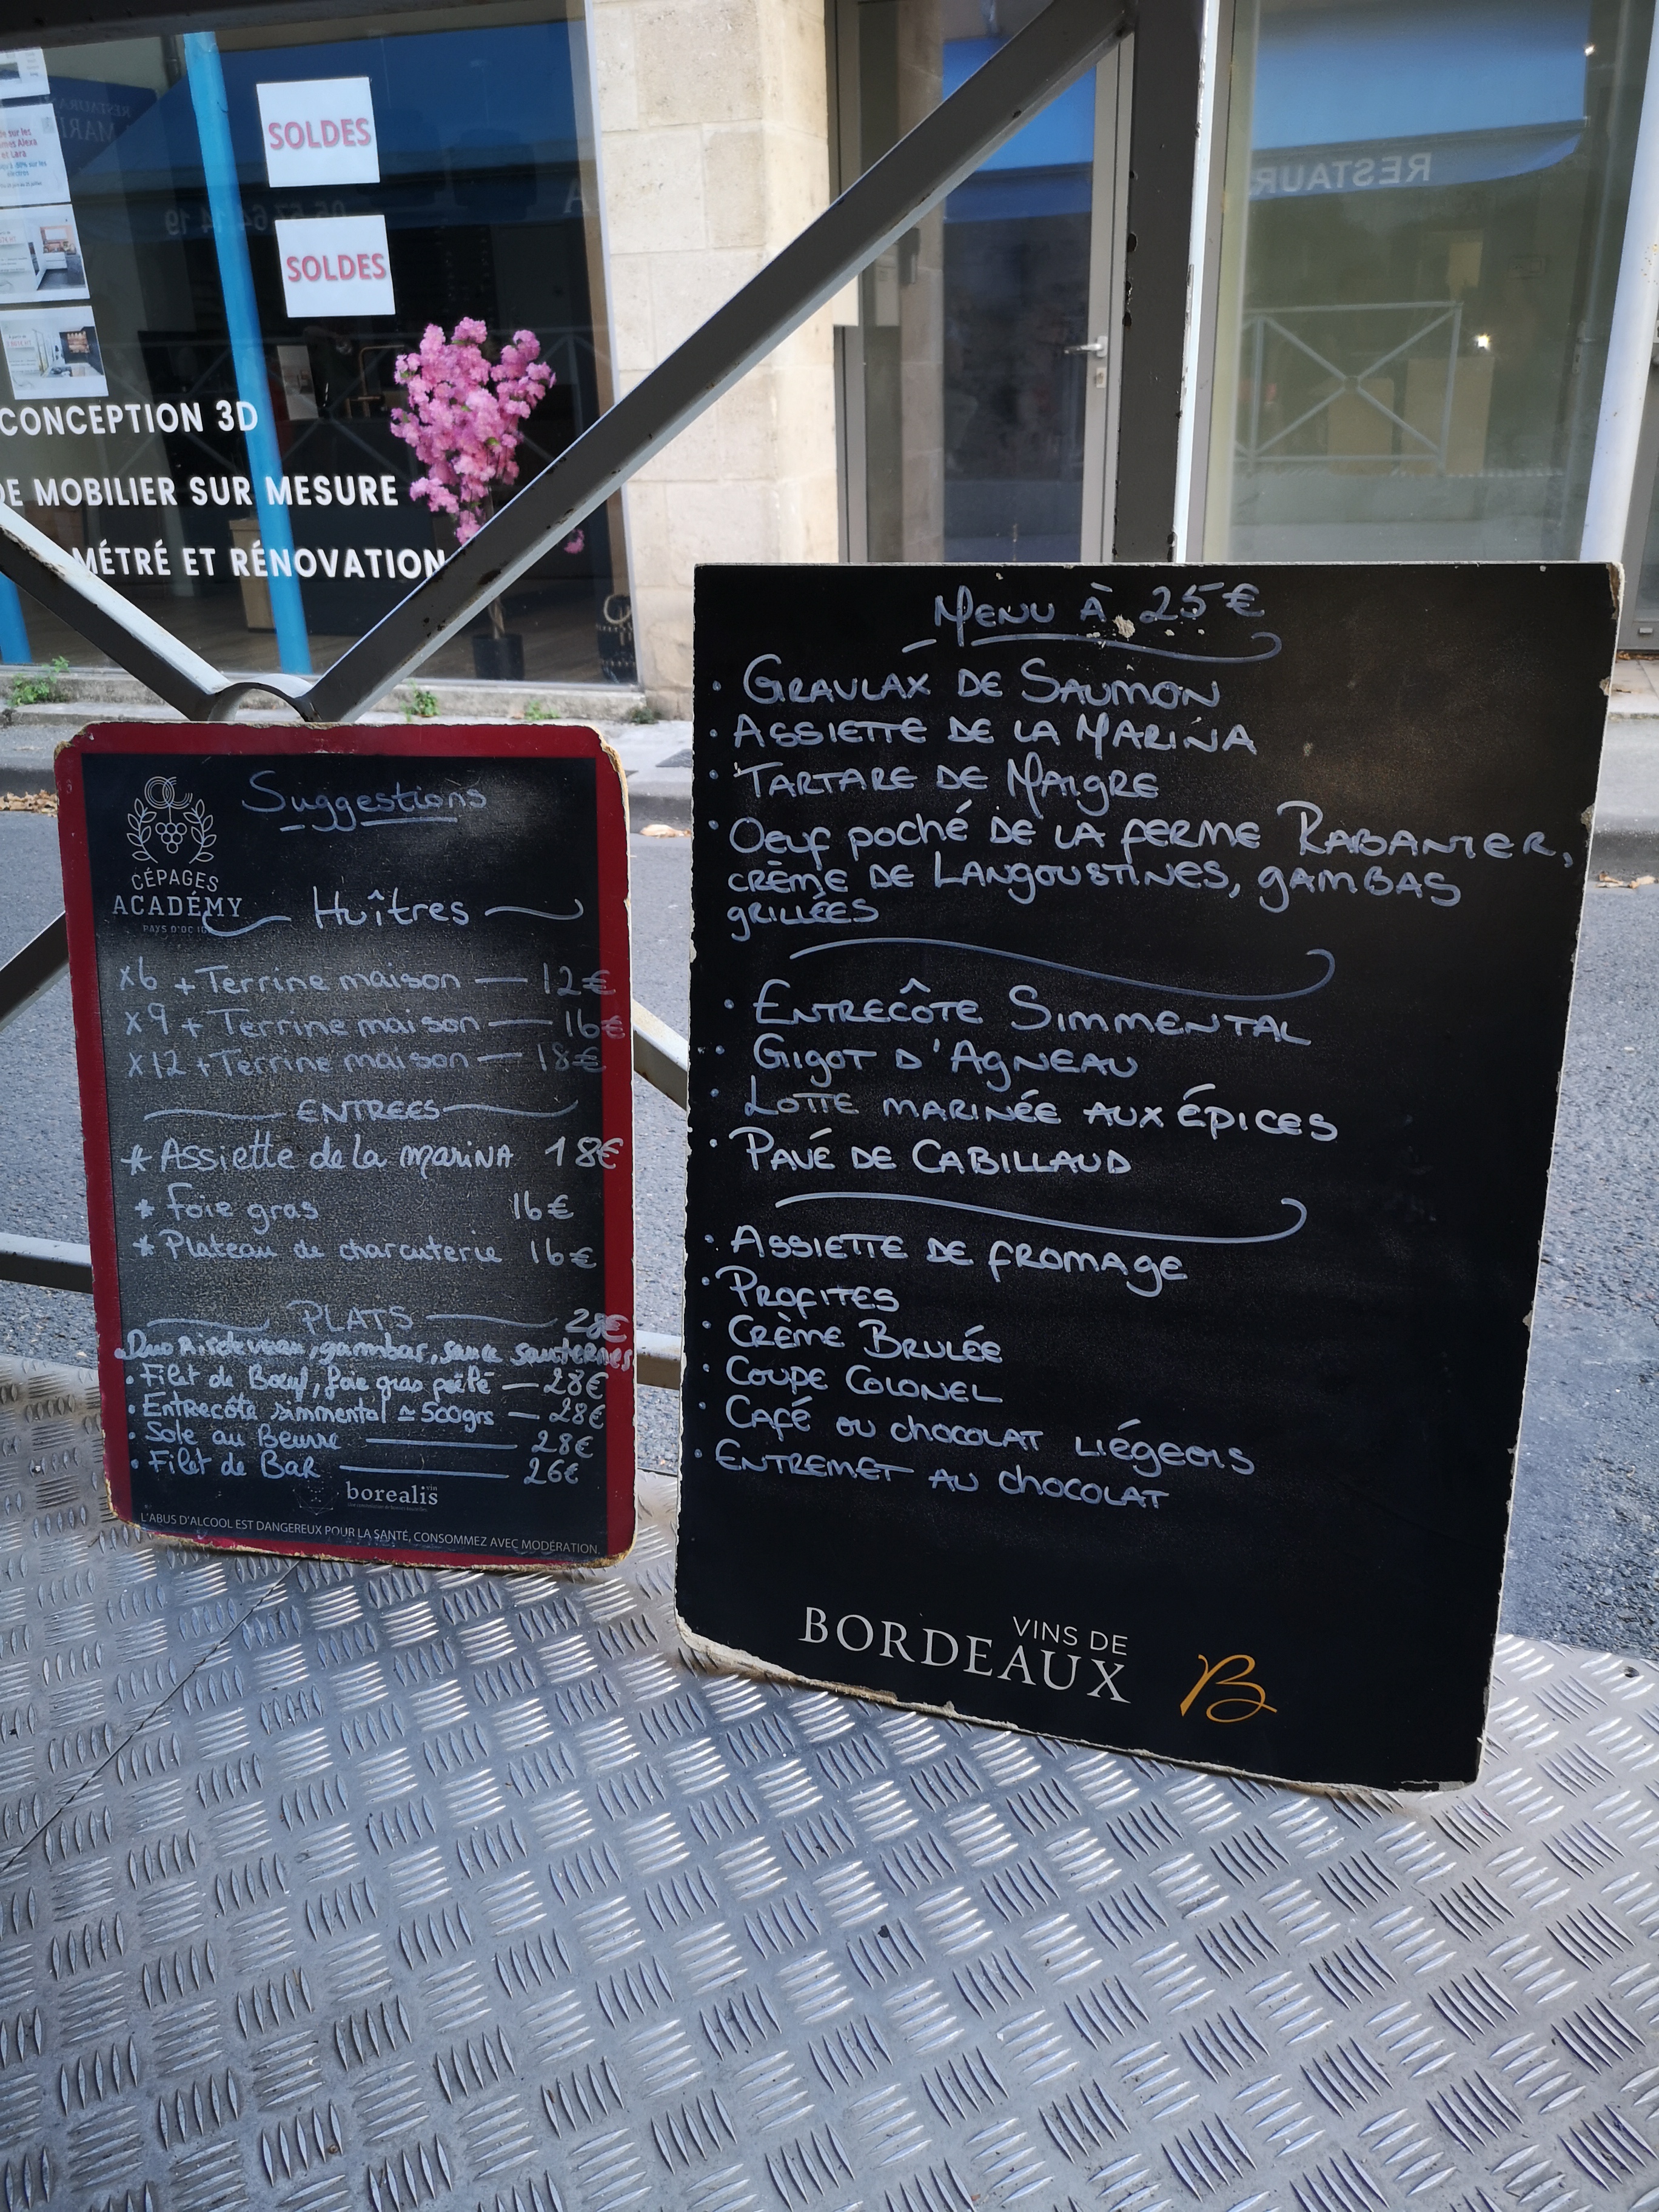 SOLDES
SOLDES
CONCEPTION 3D
DE MOBILIER SUR MESURE
MÉTRÉ ET RÉNOVATION
RESTAUR
05 57 64 14 19
Suggestions
CÉPAGES
ACADÉMY
PAYS D'OC IG
Huîtres
x6 + Terrine maison — 12€
x9 + Terrine maison — 16€
x12 + Terrine maison — 18€
ENTREES
* Assiette de la MARINA 18€
* foie gras 16€
* Plateau de charcuterie 16€
PLATS 28€
• Duo Ris de veau, gambas, sauce sauternes
• Filet de Boeuf, foie gras poêlé — 28€
• Entrecôte simmental ≃ 500grs — 28€
• Sole au Beurre — 28€
• Filet de Bar — 26€
borealis
L'ABUS D'ALCOOL EST DANGEREUX POUR LA SANTÉ, CONSOMMEZ AVEC MODÉRATION.
MENU À 25€
• GRAVLAX DE SAUMON
• ASSIETTE DE LA MARINA
• TARTARE DE MAIGRE
• OEUF POCHÉ DE LA FERME RABANIER,
CRÈME DE LANGOUSTINES, GAMBAS
GRILLÉES
• ENTRECÔTE SIMMENTAL
• GIGOT D'AGNEAU
• LOTTE MARINÉE AUX ÉPICES
• PAVÉ DE CABILLAUD
• ASSIETTE DE FROMAGE
• PROFITES
• CRÈME BRULÉE
• COUPE COLONEL
• CAFÉ OU CHOCOLAT LIÉGEOIS
• ENTREMET AU CHOCOLAT
VINS DE
BORDEAUX
B